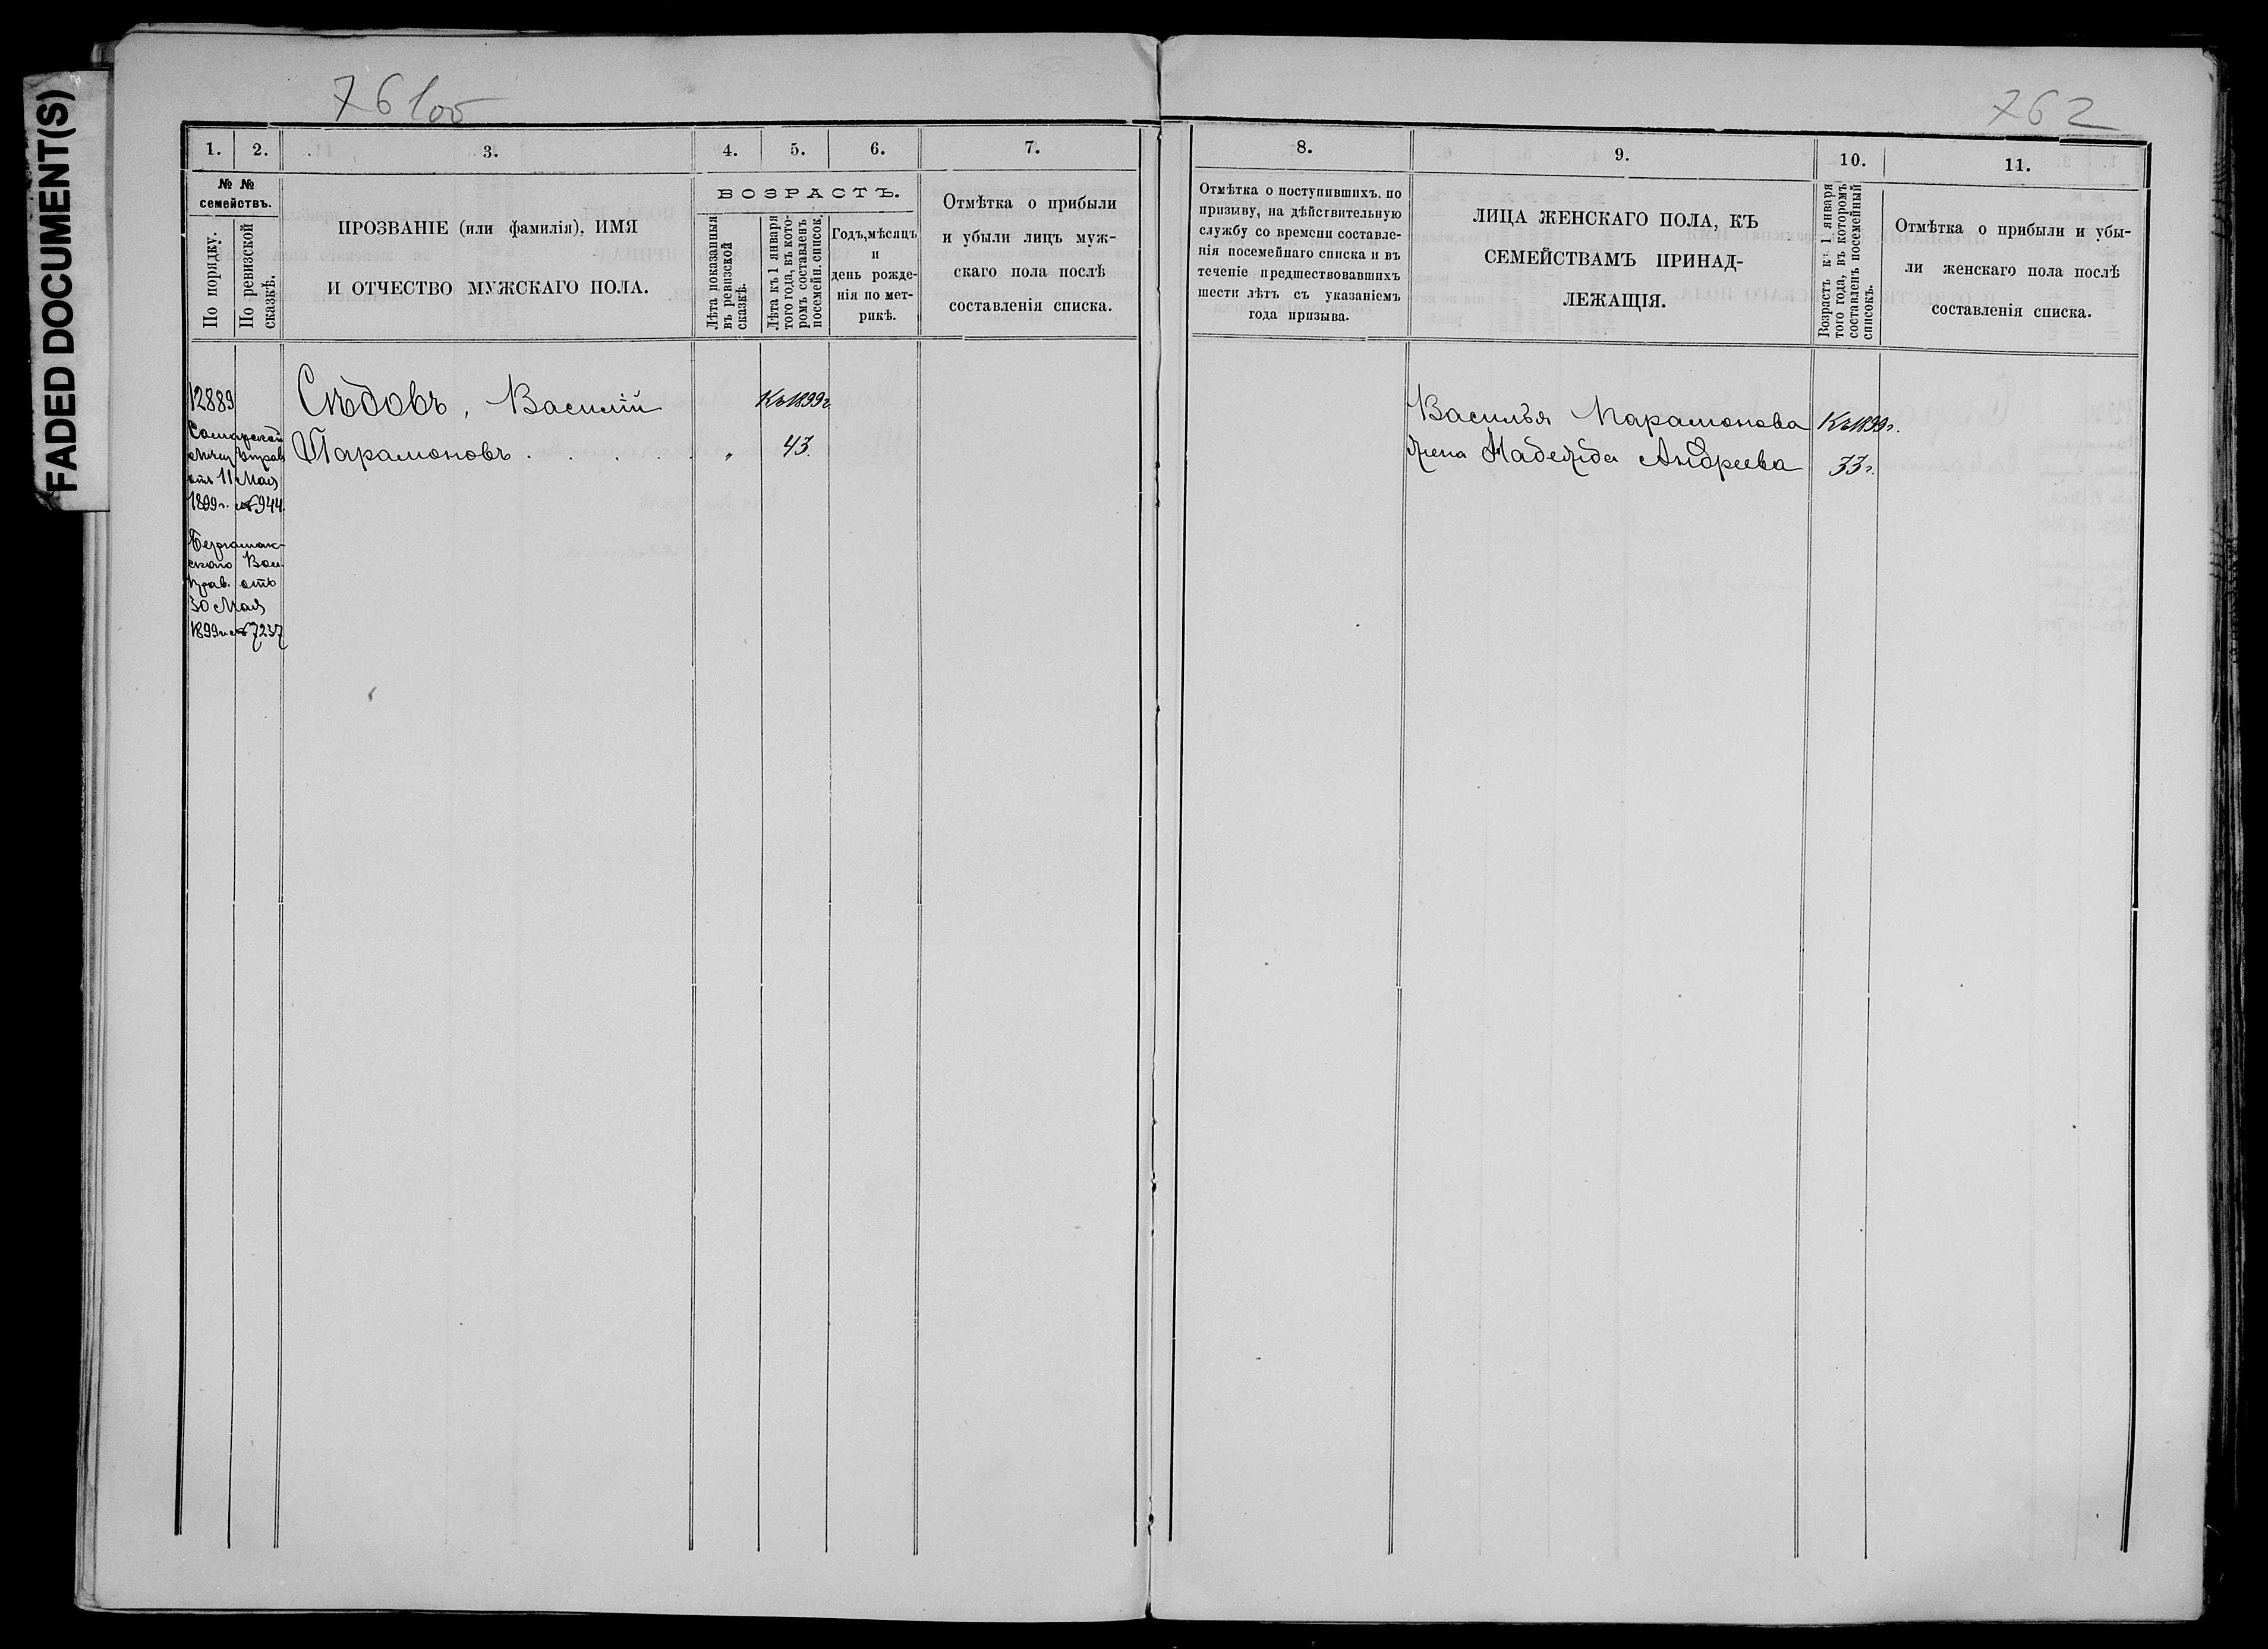 FADED DOCUMENT(S)
76 1об
762
1. 2. 3. 4. 5. 6. 7.
№ №
семействъ.
По порядку.
По ревизской
сказкѣ.
ПРОЗВАНІЕ (или фамилія), ИМЯ
И ОТЧЕСТВО МУЖСКАГО ПОЛА.
ВОЗРАСТЪ.
Лѣта показанныя
въ ревизской
сказкѣ.
Лѣта къ 1 января
того года, въ кото-
ромъ составленъ
посемейн. список.
Годъ, мѣсяцъ
и
день рожде-
нія по мет-
рикѣ.
Отмѣтка о прибыли
и убыли лицъ муж-
скаго пола послѣ
составленія списка.
12889
Сѣдовъ, Василій
Къ 1899г
Парамоновъ . . . . „ 43.
Самарской
Мѣщ Управ
отъ 11 Мая
1899г. №944.
Волост
Прав. отъ
30 Мая
1899г. №7237
8. 9. 10. 11.
Отмѣтка о поступившихъ. по
призыву, на дѣйствительную
службу со времени составле-
нія посемейнаго списка и въ
теченіе предшествовавшихъ
шести лѣтъ съ указаніемъ
года призыва.
ЛИЦА ЖЕНСКАГО ПОЛА, КЪ
СЕМЕЙСТВАМЪ ПРИНАД-
ЛЕЖАЩІЯ.
Возрастъ къ 1 января
того года, въ которомъ
составленъ посемейный
списокъ.
Отмѣтка о прибыли и убы-
ли женскаго пола послѣ
составленія списка.
Василья Парамонова Къ 1899г.
жена Надежда Андреева 33г.